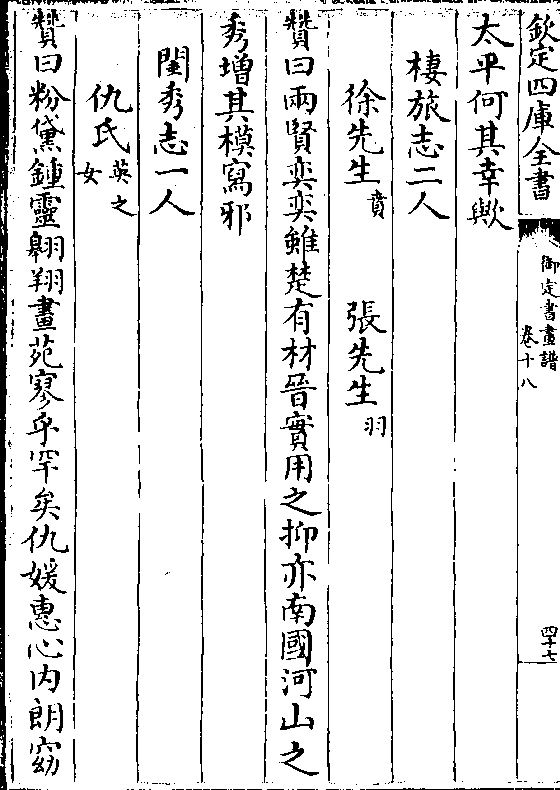 欽定四庫全書
御定書畫譜
卷十八
四十七
太平何其幸歟
棲旅志二人
徐先生賁　張先生羽
贊曰兩賢奕奕雖楚有材晉實用之抑亦南國河山之
秀增其模寫邪
閨秀志一人
仇氏英之女
贊曰粉黛鍾靈翱翔畫苑寥乎罕矣仇媛惠心内朗窈